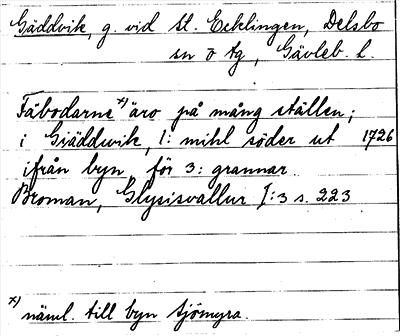 Gäddvik, g. vid St. Ecklingen, Delsbo
sn o tg, Gävleb. l.
Fäbodarne x) äro på mång ställen;
i Giäddwik, 1: mihl söder ut 1726
ifrån byn, för 3: grannar.
Broman, Glysisvallur I:3 s. 223
x) näml. till byn Sjömyra.